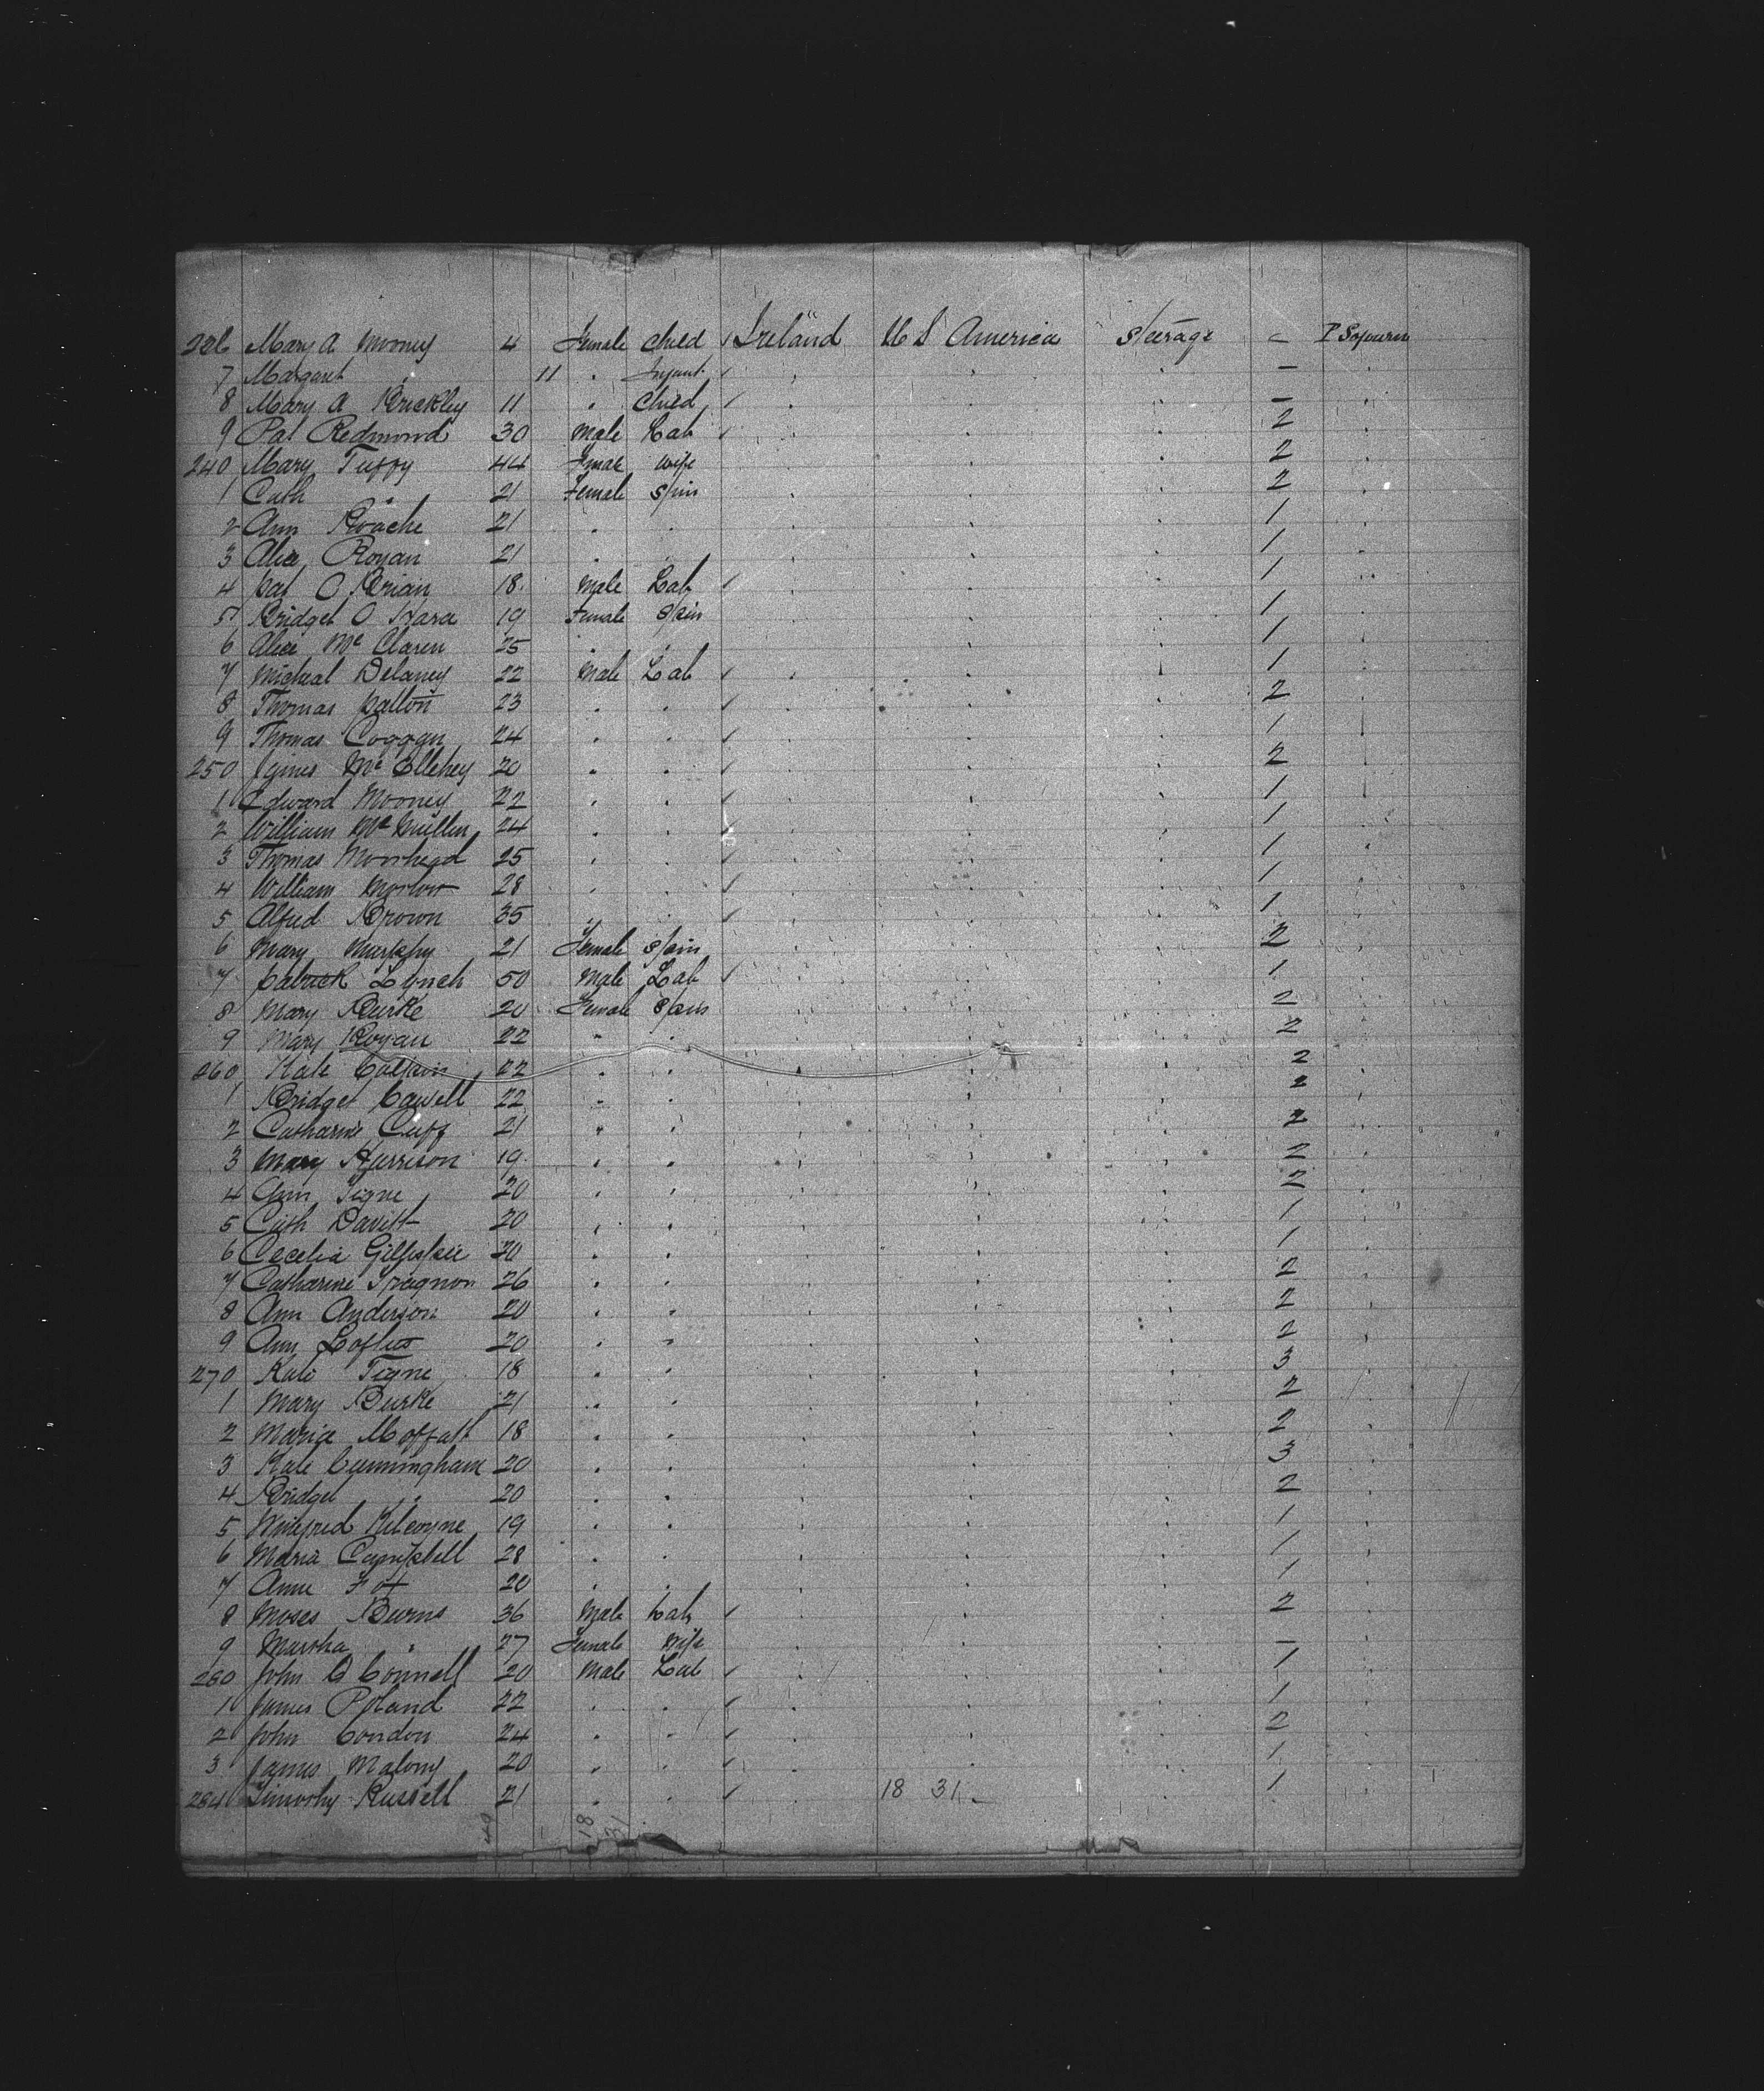 236 Mary A Mooney 4 Female Child Ireland U S America Steerage – P Sojourn
7 Margaret " 11 " Infant " " " – "
8 Mary A Brickley 11 " Child " " " – "
9 Pat Redmond 30 Male Lab " " " 2 "
240 Mary Tuffy 44 Female Wife " " " 2 "
1 Cath " 21 Female Spin " " " 2 "
2 Ann Roache 21 " " " " " 1 "
3 Alice Rogan 21 " " " " " 1 "
4 Pat O Brian 18 Male Lab " " " 1 "
5 Bridget O Hara 19 Female Spin " " " 1 "
6 Alice Mc Claren 25 " " " " " 1 "
7 Micheal Delaney 22 Male Lab " " " 1 "
8 Thomas Patton 23 " " " " " 2 "
9 Thomas Coggan 24 " " " " " 1 "
250 James Mc Ellehey 20 " " " " " 2 "
1 Edward Mooney 22 " " " " " 1 "
2 William Mc Mullen 24 " " " " " 1 "
3 Thomas Moorhead 25 " " " " " 1 "
4 William 28 " " " " " 1 "
5 Alfred Brown 35 " " " " " 1 "
6 Mary Murphy 21 Female Spin " " " 2 "
7 Patrick Lynch 50 Male Lab " " " 1 "
8 Mary Burke 20 Female Spin " " " 2 "
9 Mary Bogan 22 " " " " " 2 "
260 Kate 22 " " " " " 2 "
1 Bridget Cawell 22 " " " " " 2 "
2 Catharine Cuff 21 " " " " " 2 "
3 Mary Harrison 19 " " " " " 2 "
4 Ann Tigne 20 " " " " " 2 "
5 Cath Davitt 20 " " " " " 1 "
6 Cecelia Gillespie 20 " " " " " 1 "
7 Catharine 26 " " " " " 2 "
8 Ann Anderson 20 " " " " " 2 "
9 Ann Loftus 20 " " " " " 2 "
270 Kate Tigne 18 " " " " " 3 "
1 Mary Burke 21 " " " " " 2 "
2 Maria Moffatt 18 " " " " " 2 "
3 Kate Cunningham 20 " " " " " 3 "
4 Bridget " 20 " " " " " 2 "
5 Winifred Kilcoyne 19 " " " " " 1 "
6 Maria Campbell 28 " " " " " 1 "
7 Anne Fox 20 " " " " " 1 "
8 Moses Burns 36 Male Lab " " " 2 "
9 Martha " 27 Female Wife " " " – "
280 John O Connell 20 Male Lab " " " 1 "
1 James Poland 22 " " " " " 1 "
2 John Condon 24 " " " " " 2 "
3 James Malony 20 " " " " " 1 "
284 Timothy Russell 21 " " " 18 31 1 "
18
31